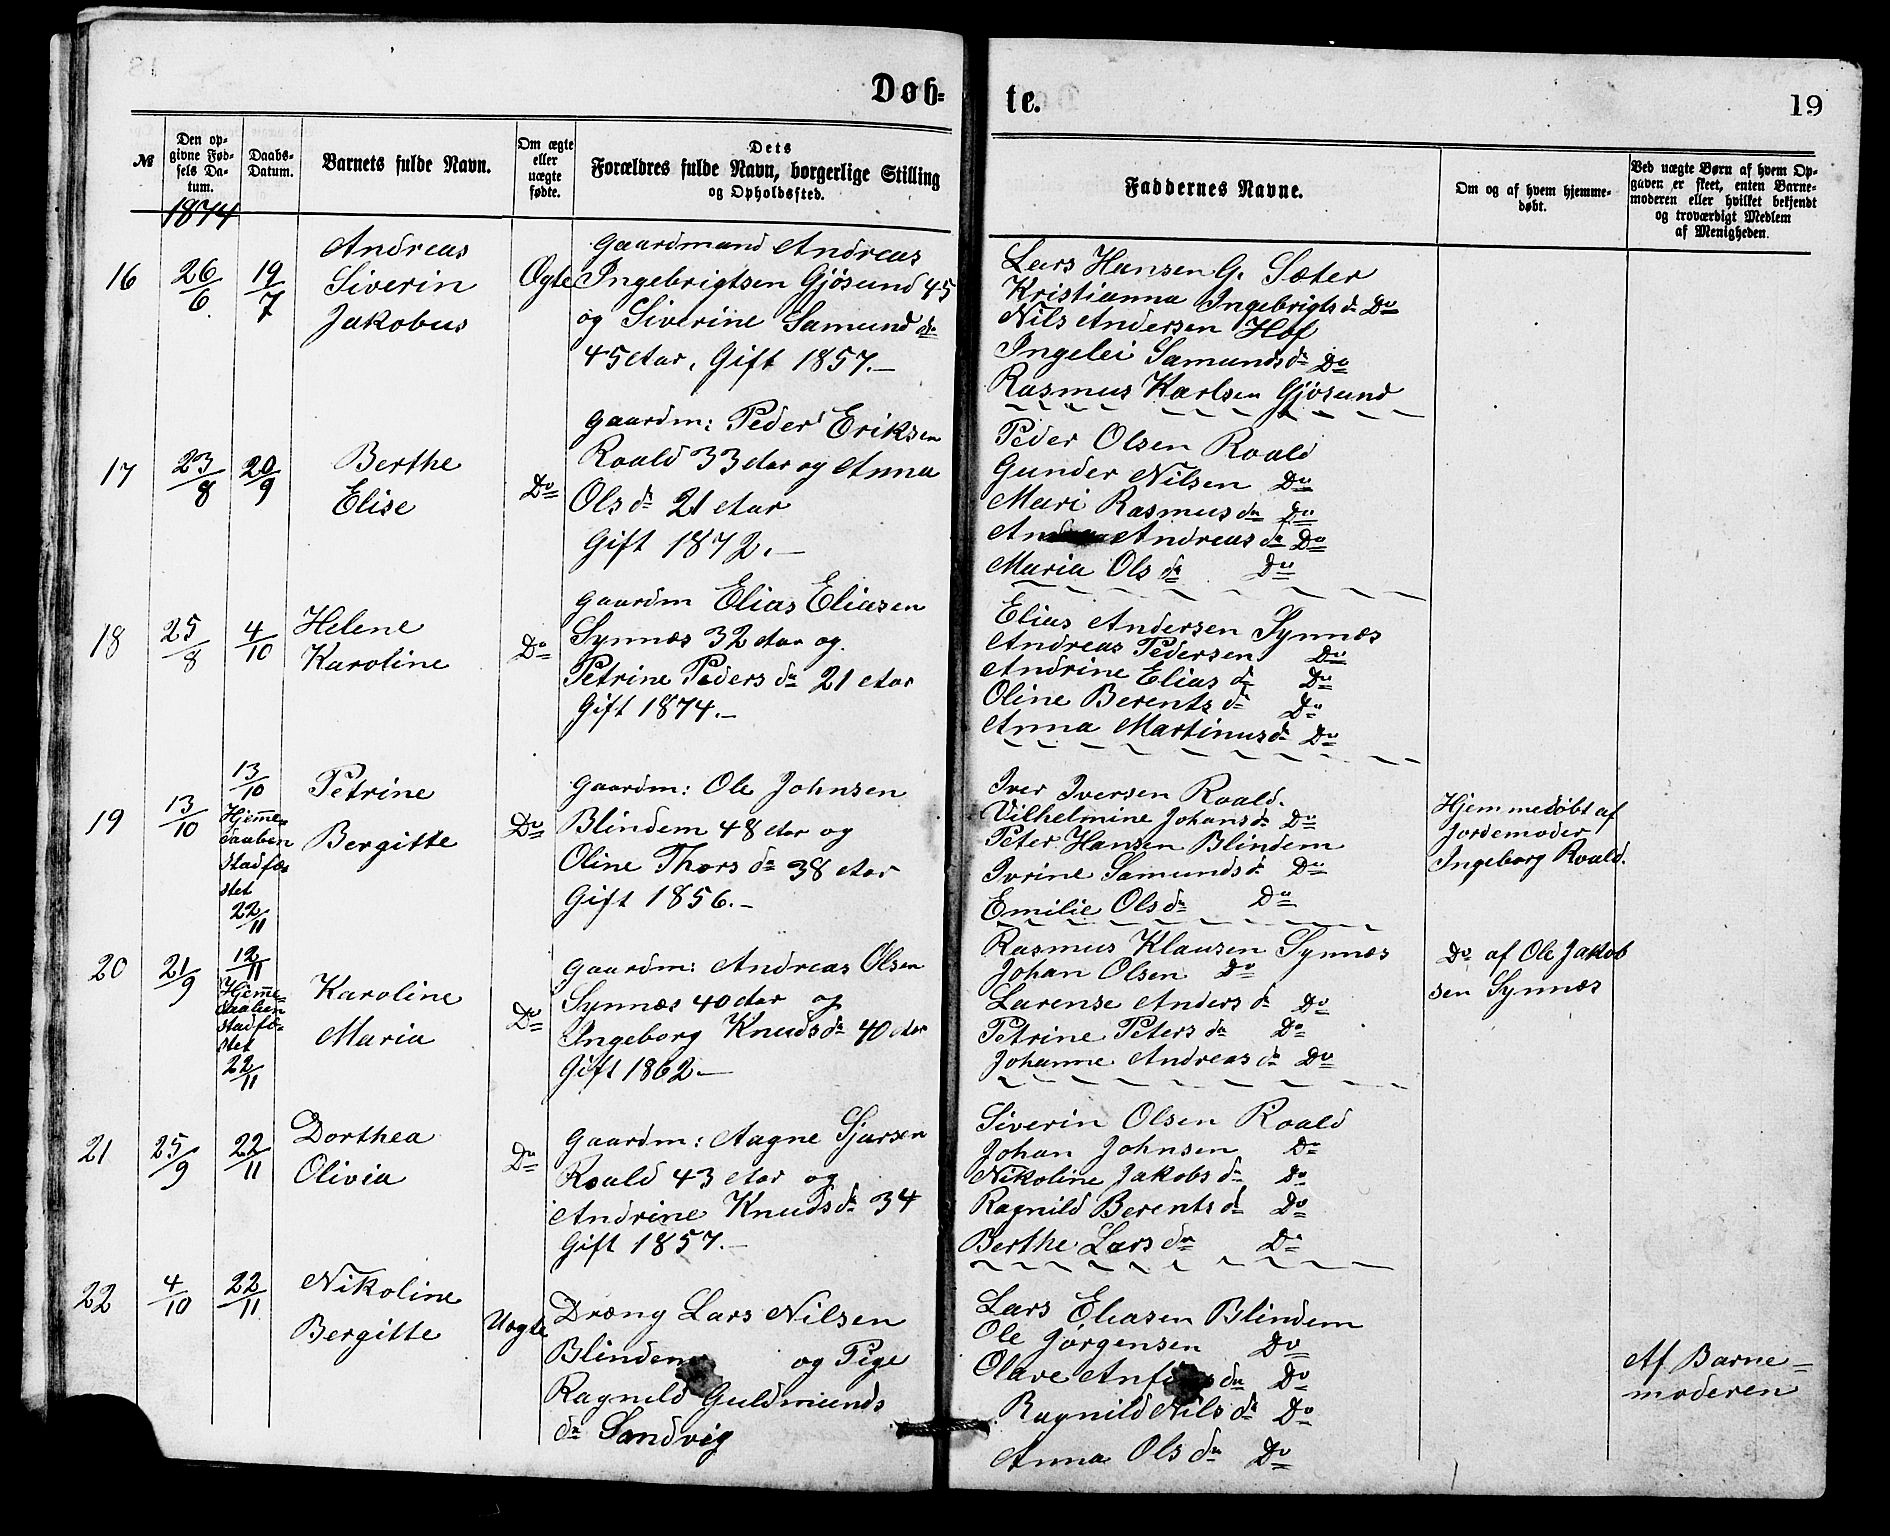 Døb-
te.
19
№
Den op-
givne Fød-
sels Da-
tum.
Daabs-
Datum.
Barnets fulde Navn.
Om ægte
eller
uægte
fødte.
Dets
Forældres fulde Navn, borgerlige Stilling
og Opholdssted.
Faddernes Navne.
Om og af hvem hjemme-
døbt.
Ved uægte Børn af hvem Op-
gaven er skeet, enten Barne-
moderen eller hvilket bekjendt
og troværdigt Medlem
af Menigheden.
1874
16
26/6
19/7
Andreas
Siverin
Jakobus
Ægte
Gaardmand Andreas
Ingebrigtsen Gjøsund 45
og Siverine Samund dr
45 Aar, Gift 1857.—
Lars Hansen G. Sæter
Kristianna Ingebrigts dr Do
Nils Andersen Hof
Ingelei Samunds dr Do
Rasmus Karlsen Gjøsund
17
23/8
20/9
Berthe
Elise
Do
Gaardm: Peder Eriksen
Roald 33 Aar og Anna
Ols dr 21 Aar
Gift 1872.—
Peder Olsen Roald
Gunder Nilsen Do
Mari Rasmus dr Do
Andreas dr Do
Maria Ols dr Do
18
25/8
4/10
Helene
Karoline
Do
Gaardm Elias Eliasen
Synnæs 32 Aar og
Petrine Peders dr 21 Aar
Gift 1874.—
Elias Andersen Synnæs
Andreas Pedersen Do
Andrine Elias dr Do
Oline Berents dr Do
Anna Martinus dr Do
19
13/10
13/10
Hjemme-
daaben
stadfæ-
stet
22/11
Petrine
Bergitte
Do
Gaardm: Ole Johnsen
Blindem 48 Aar og
Oline Thors dr 38 Aar
Gift 1856.—
Iver Iversen Roald.
Vilhelmine Johans dr Do
Peter Hansen Blindem
Ivrine Samunds dr Do
Emilie Ols dr Do
Hjemmedøbt af
Jordemoder
Ingeborg Roald.
20
21/9
12/11
Hjemme-
daaben
stadfæ-
stet
22/11
Karoline
Maria
Do
Gaardm: Andreas Olsen
Synnæs 40 Aar og
Ingeborg Knuds dr 40 Aar
Gift 1862—
Rasmus Klausen Synnæs
Johan Olsen Do
Larense Anders dr Do
Petrine Peters dr Do
Johanne Andreas dr Do
Do af Ole Jakob
sen Synnæs
21
25/9
22/11
Dorthea
Olivia
Do
Gaardm: Aagne Sjursen
Roald 43 Aar og
Andrine Knuds dr 34
Gift 1857.—
Siverin Olsen Roald
Johan Johnsen Do
Nikoline Jakobs dr Do
Ragnild Berents dr Do
Berthe Lars dr Do
22
4/10
22/11
Nikoline
Bergitte
Uægte
Dræng Lars Nilsen
Blindem og Pige
Ragnild Guldmunds
dr Sandvig
Lars Eliasen Blindem
Ole Jørgensen Do
Olave dr Do
Ragnild Nils dr Do
Anna Ols dr Do
Af Barne-
moderen